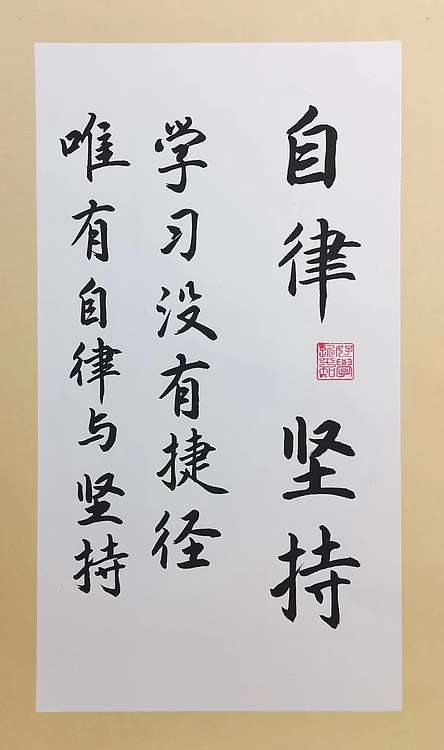 自律 坚持
学习没有捷径
唯有自律与坚持